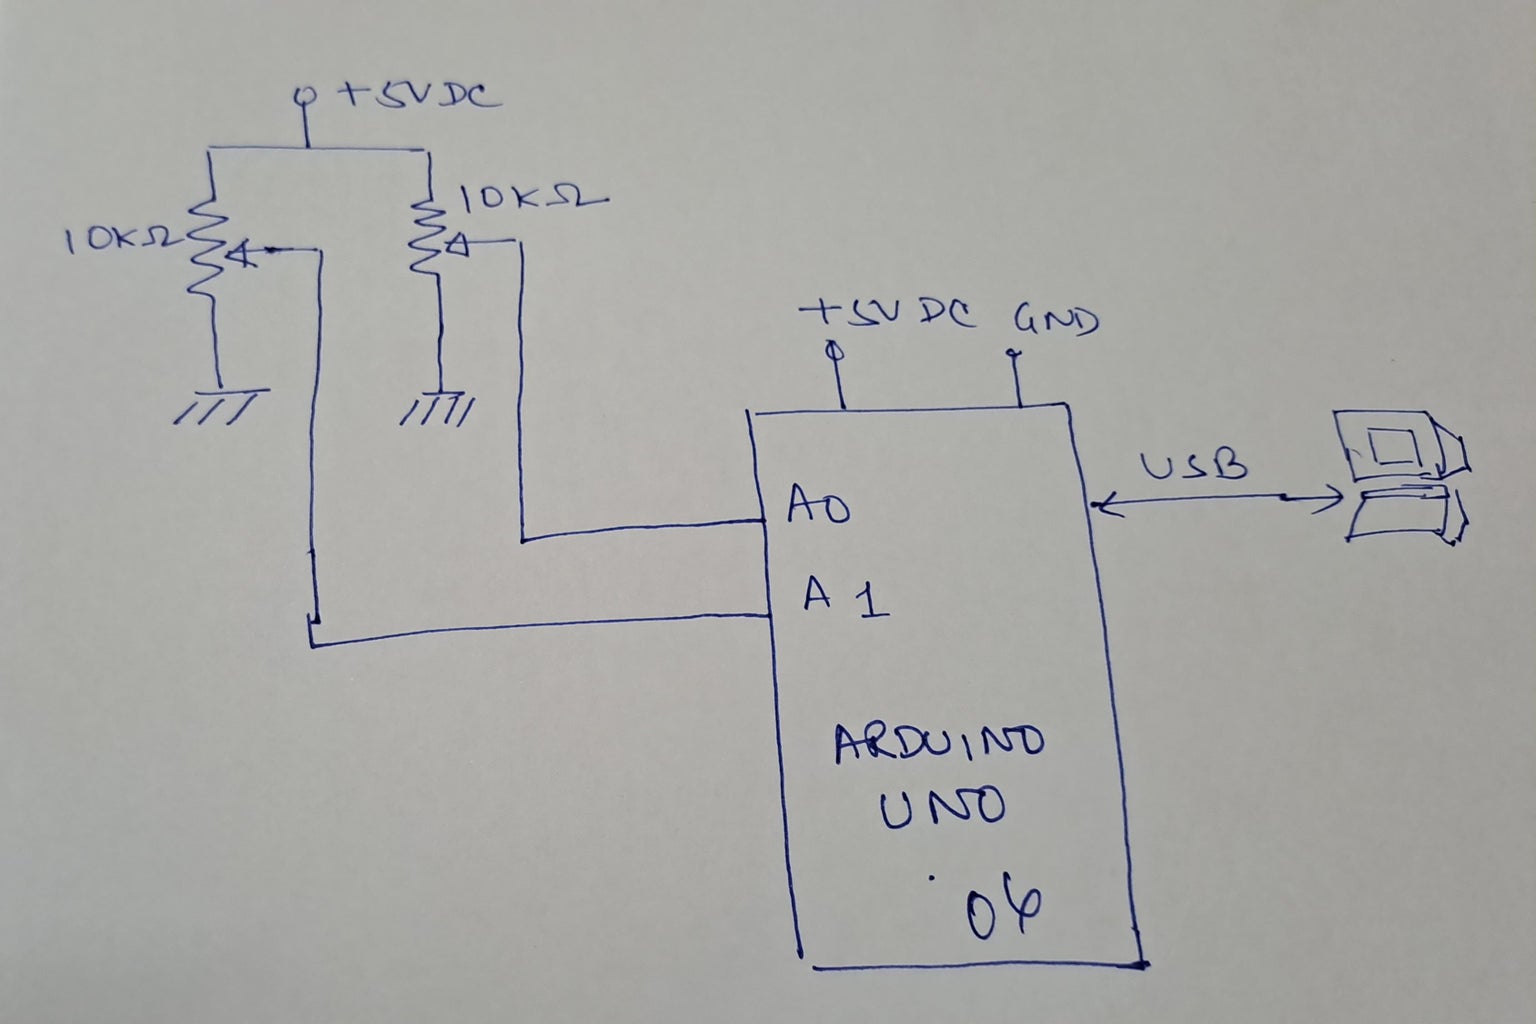 +5VDC
10KΩ
10KΩ
+5VDC GND
USB
A0
A1
ARDUINO
UNO
06